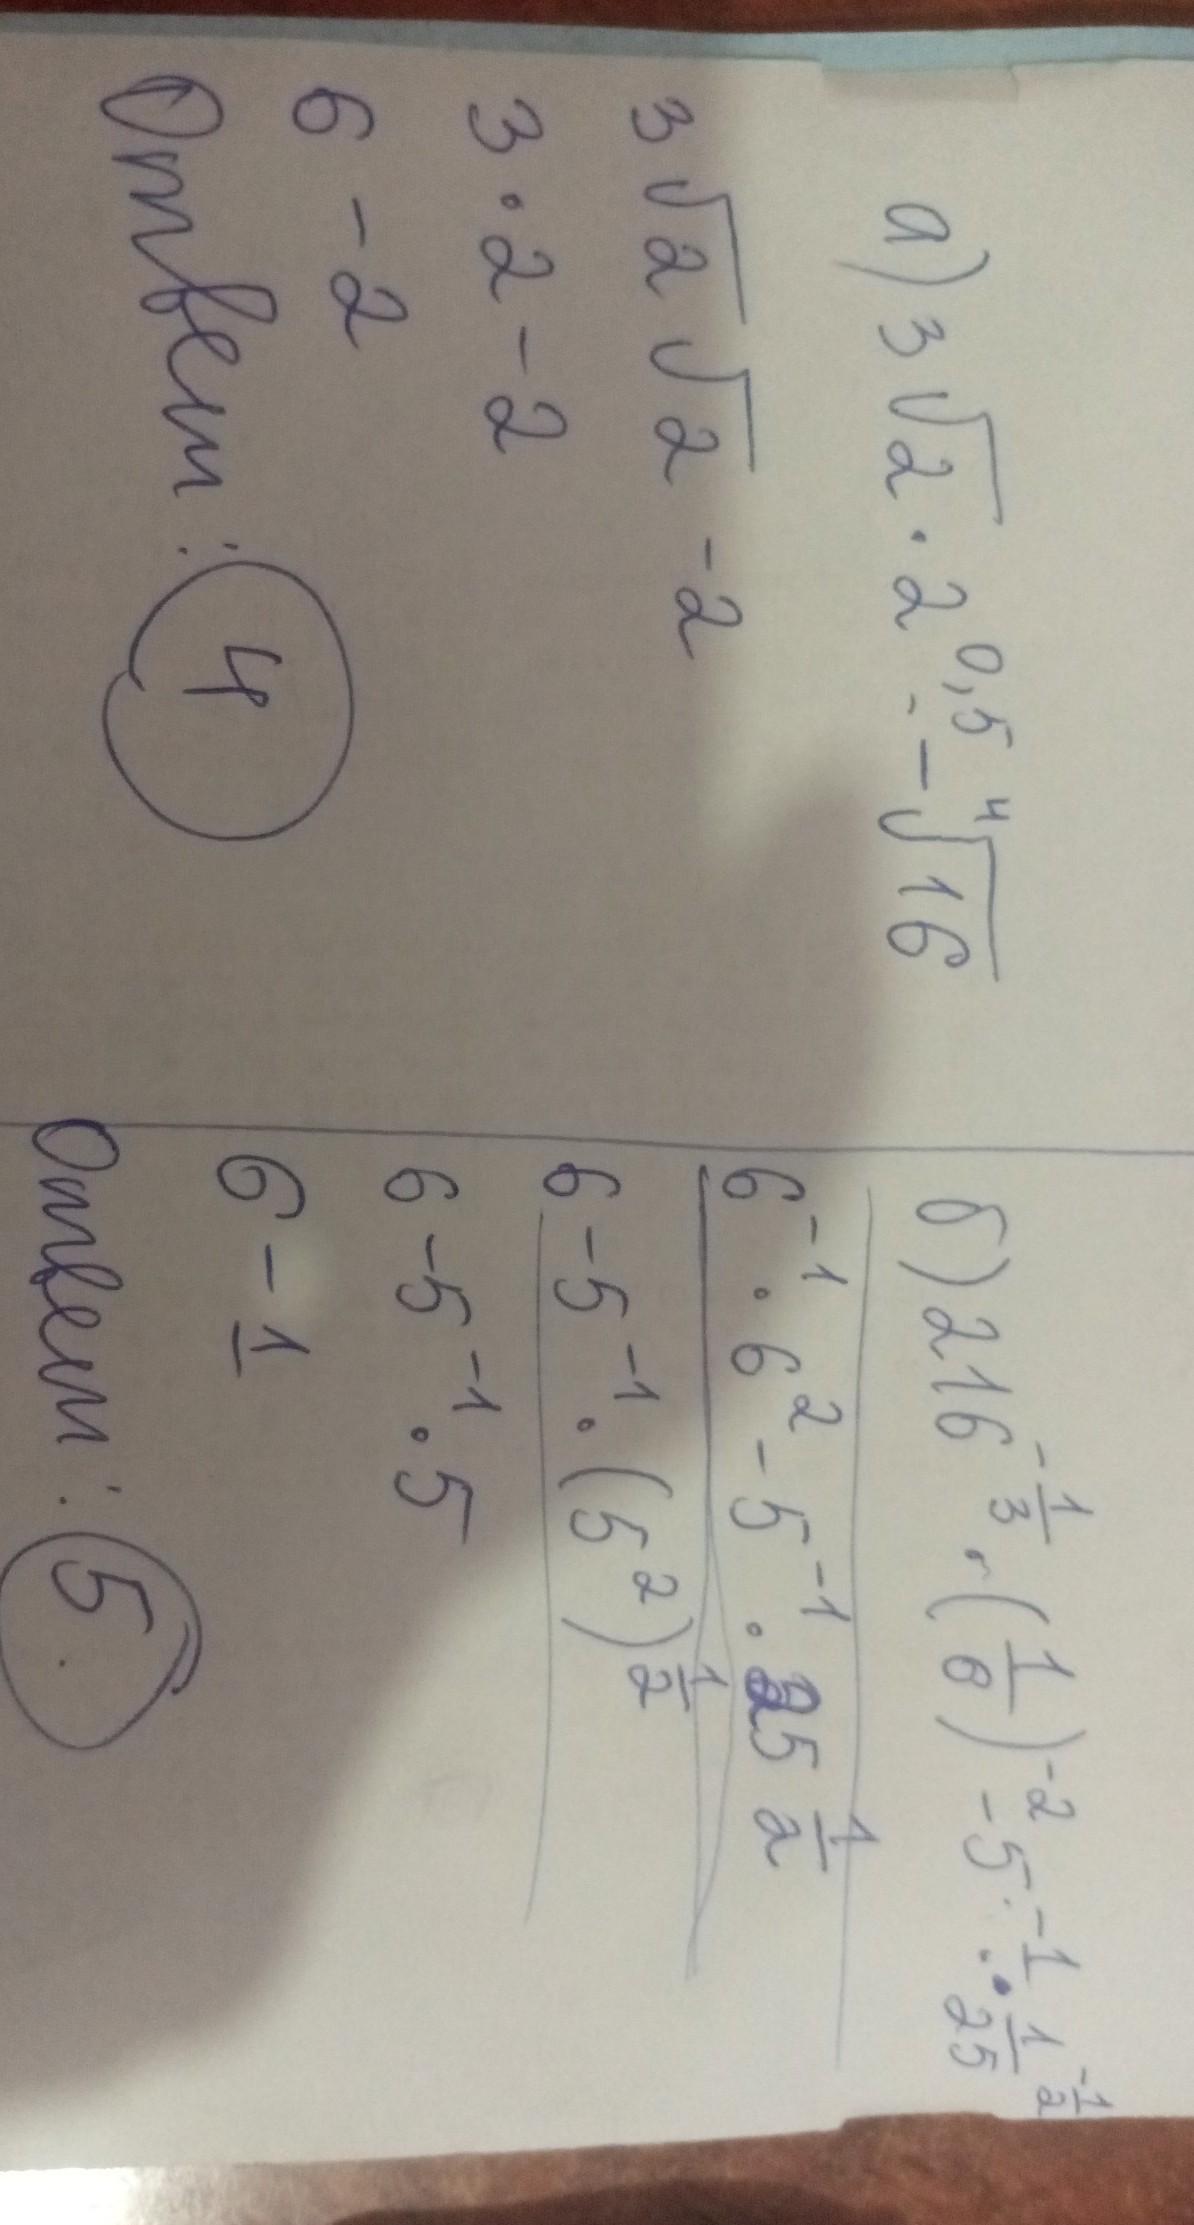 а) 3√2 · 2^0,5 - ⁴√16
3√2 √2 - 2
3 · 2 - 2
6 - 2
Ответ: 4
б) 216^(-1/3) · (1/6)^(-2) - 5^(-1) · 1/25^(-1/2)
6^(-1) · 6^2 - 5^(-1) · 25^(1/2)
6 - 5^(-1) · (5^2)^(1/2)
6 - 5^(-1) · 5
6 - 1
Ответ: 5.